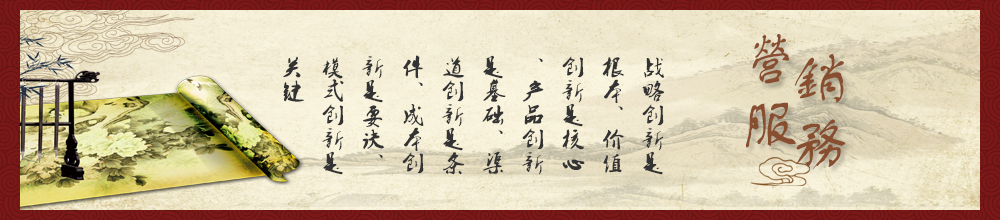 營銷
服務
战略创新是
根本、价值
创新是核心
、产品创新
是基础、渠
道创新是条
件、成本创
新是要诀、
模式创新是
关键